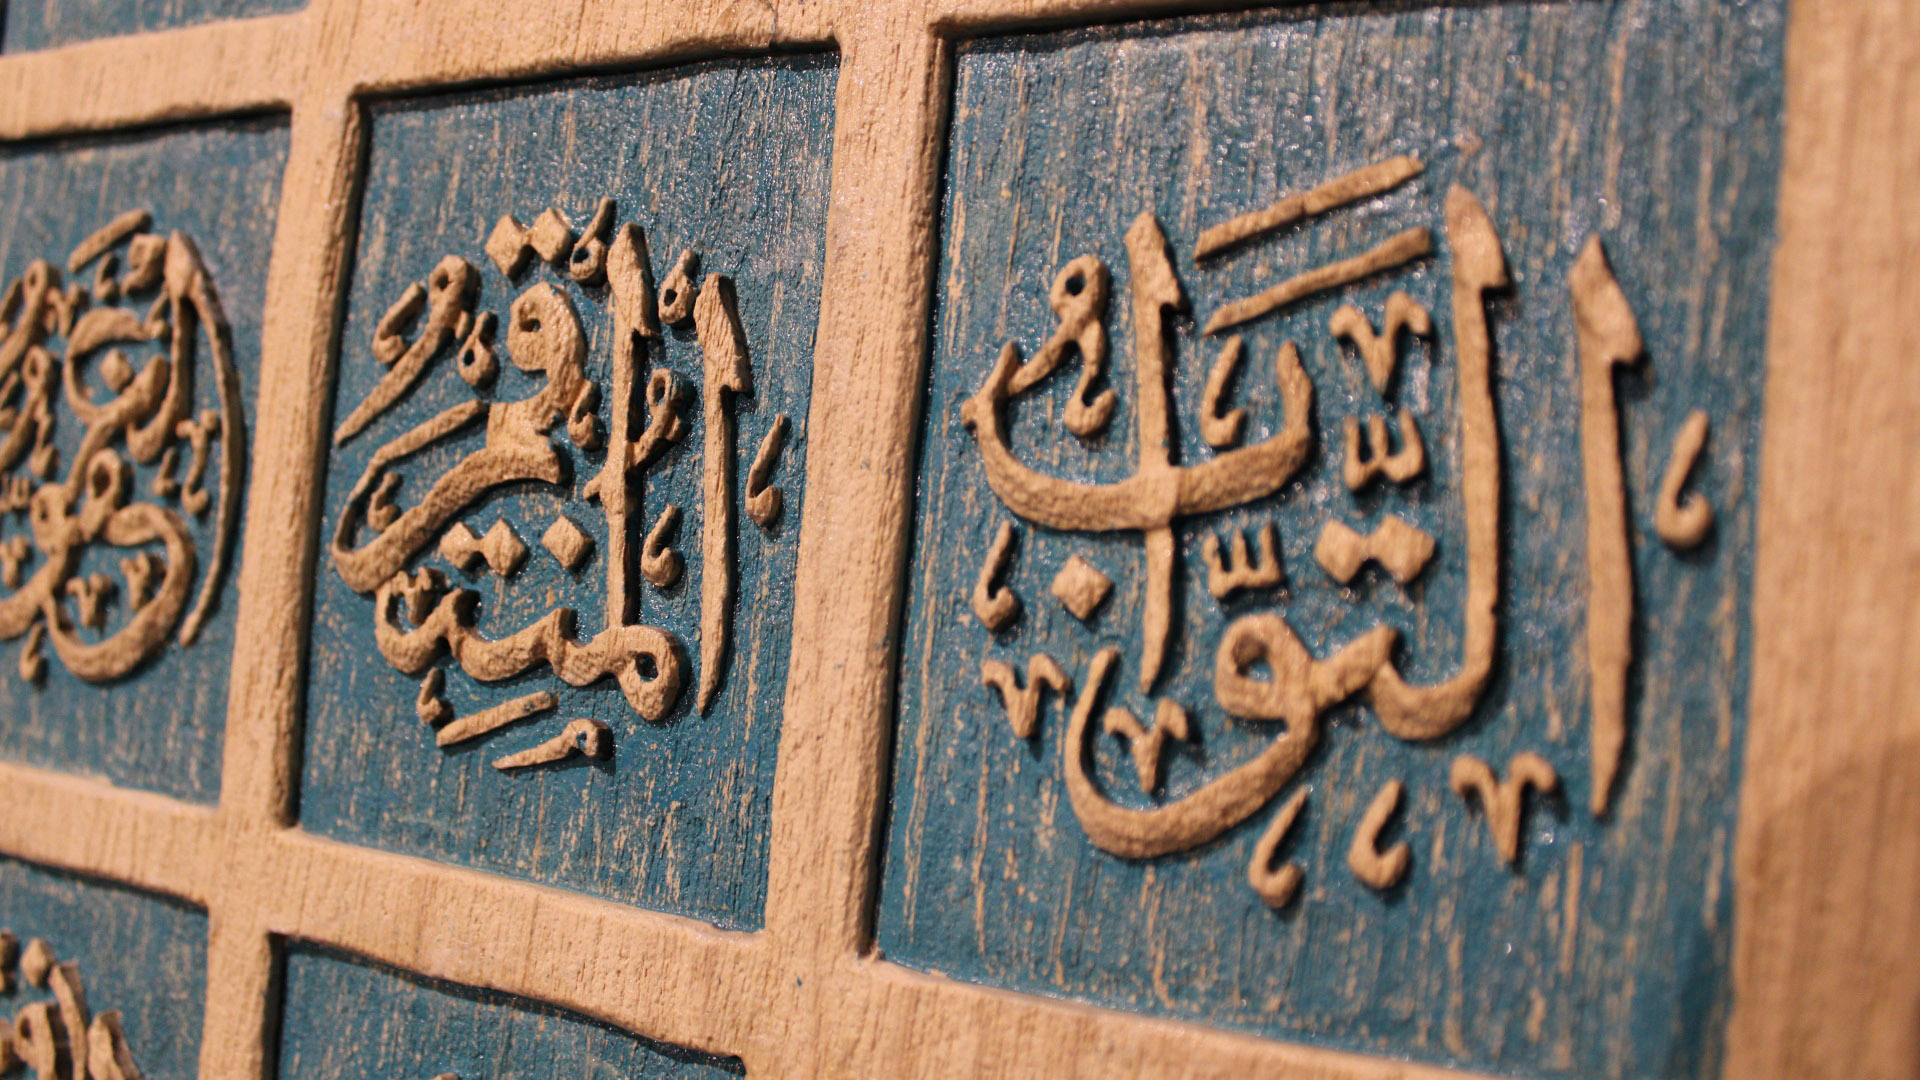 التَّوَّابُ
المُنْتَقِمُ
العَفُوُّ